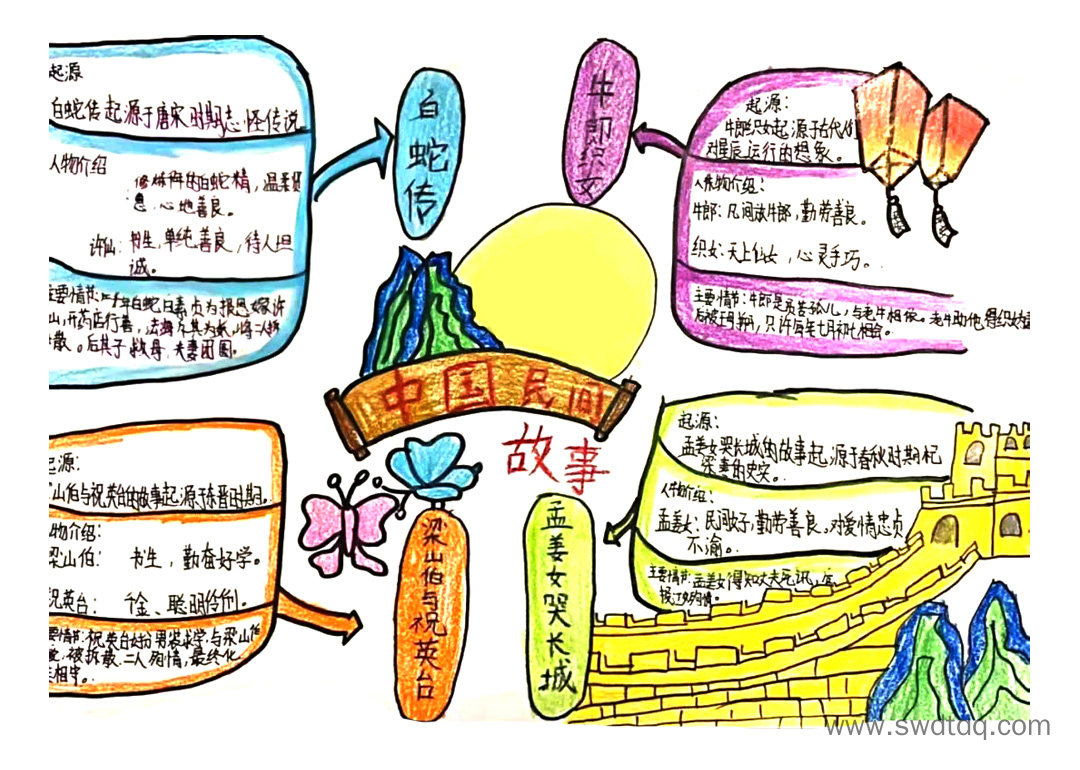 中国民间
故事
白蛇传
起源
白蛇传起源于唐宋时期志怪传说
人物介绍
修炼千年的白蛇精，温柔贤
惠，心地善良。
许仙：书生，单纯善良，待人坦
诚。
主要情节：千年白蛇白素贞为报恩嫁许
山，开药店行善，法海
散。后其子救母，夫妻团圆。
牛郎织女
起源：
牛郎织女起源于古代人
对星辰运行的想象。
人物介绍：
牛郎：凡间放牛郎，勤劳善良。
织女：天上仙女，心灵手巧。
主要情节：牛郎是贫苦孤儿，与老牛相依。老牛助他得织女
后被王母 ，只许每年七月初七相会。
梁山伯与祝英台
起源：
梁山伯与祝英台的故事起源于东晋时期。
人物介绍：
梁山伯：书生，勤奋好学。
祝英台：千金、聪明伶俐。
要情节：祝英台女扮男装求学，与梁山伯
被拆散，二人殉情，最终化
相守。
孟姜女哭长城
起源：
孟姜女哭长城的故事起源于春秋时期杞
梁妻的史实
人物介绍：
孟姜女：民间女子，勤劳善良。对爱情忠贞
不渝。
主要情节：孟姜女得知丈夫死讯，
殉情。
www.swdtdq.com